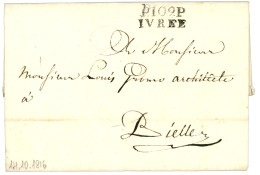 P109P
IVREE
De Monsieur
Monsieur Louis Promo architecte
à
Bielle
14.10.1816